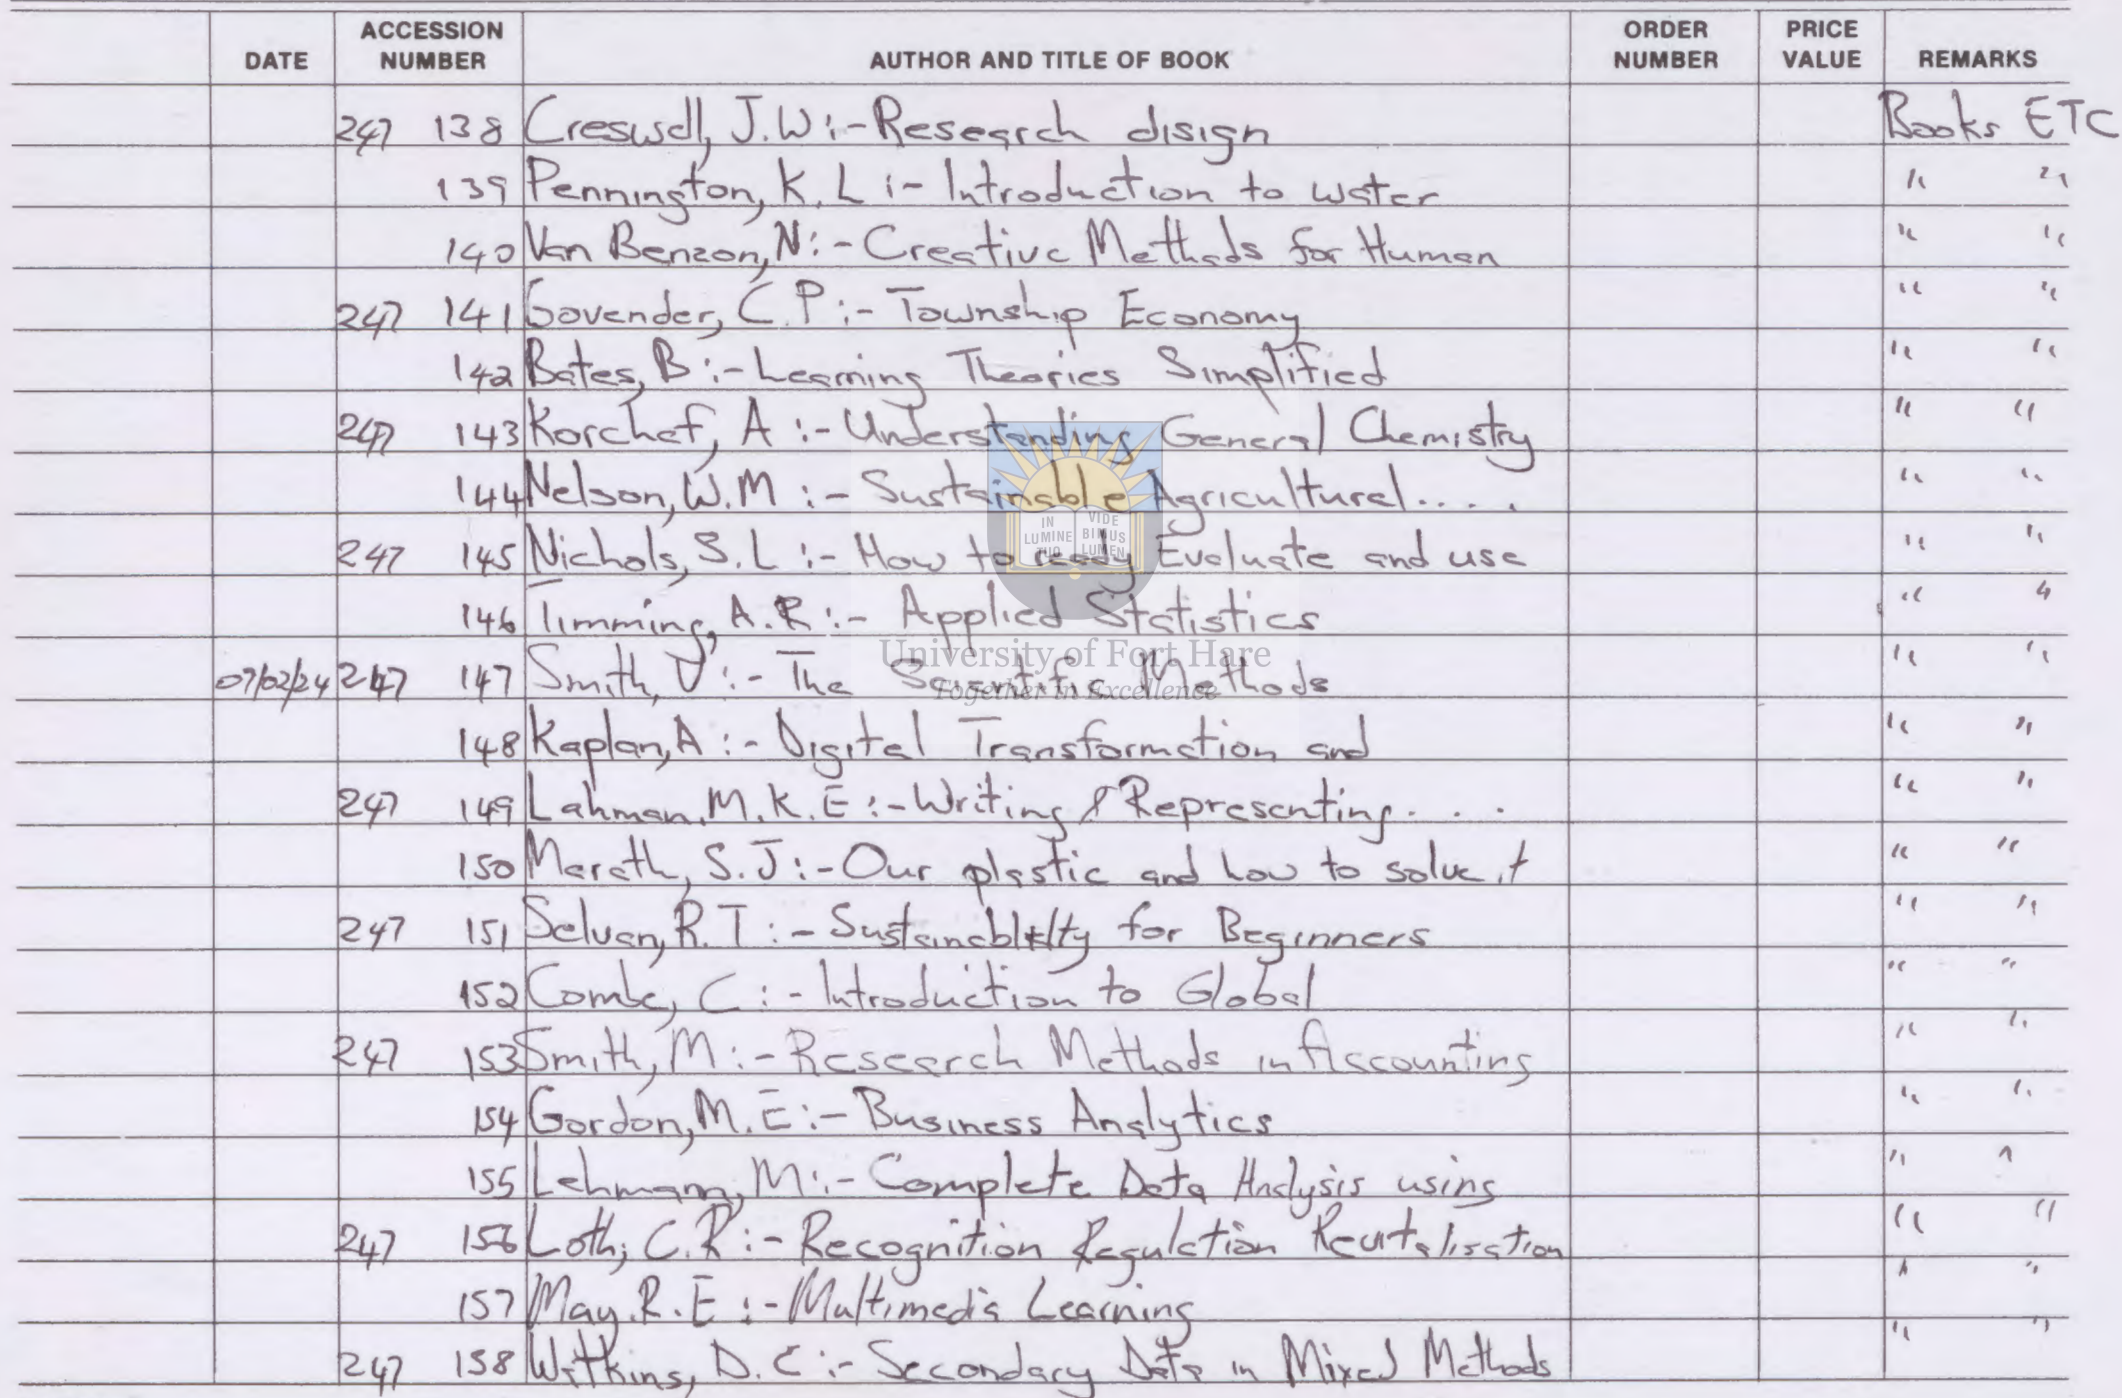 DATE ACCESSION NUMBER AUTHOR AND TITLE OF BOOK ORDER NUMBER PRICE VALUE REMARKS
247 138 Creswell, J.W:-Research disign Books ETC
139 Pennington, K.L:- Introduction to water " "
140 Van Benzon, N:- Creative Methods for Human " "
247 141 Govender, C.P:- Township Economy " "
142 Bates, B:- Learning Theories Simplified " "
247 143 Korchef, A:- Understanding General Chemistry " "
144 Nelson, W.M:- Sustainable Agricultural.... " "
IN LUMINE TUO VIDEBIMUS LUMEN
247 145 Nichols, S.L:- How to ready Evaluate and use " "
146 Timming, A.R:- Applied Statistics " "
University of Fort Hare
07/02/24 247 147 Smith, V:- The Scientific Methods " "
Together in Excellence
148 Kaplan, A:- Digital Transformation and " "
247 149 Lahman, M.K.E:- Writing & Representing... " "
150 Marath, S.J:- Our plastic and how to solve it " "
247 151 Selvan, R.T:- Sustainability for Beginners " "
152 Combe, C:- Introduction to Global " "
247 153 Smith, M:- Research Methods in Accounting " "
154 Gordon, M.E:- Business Analytics " "
155 Lehmann, M:- Complete Data Analysis using " "
247 156 Loth, C.R:- Recognition Regulation Revitalisation " "
157 May. R.E:- Multimedia Learning " "
247 158 Watkins, D.C:- Secondary Data in Mixed Methods " "